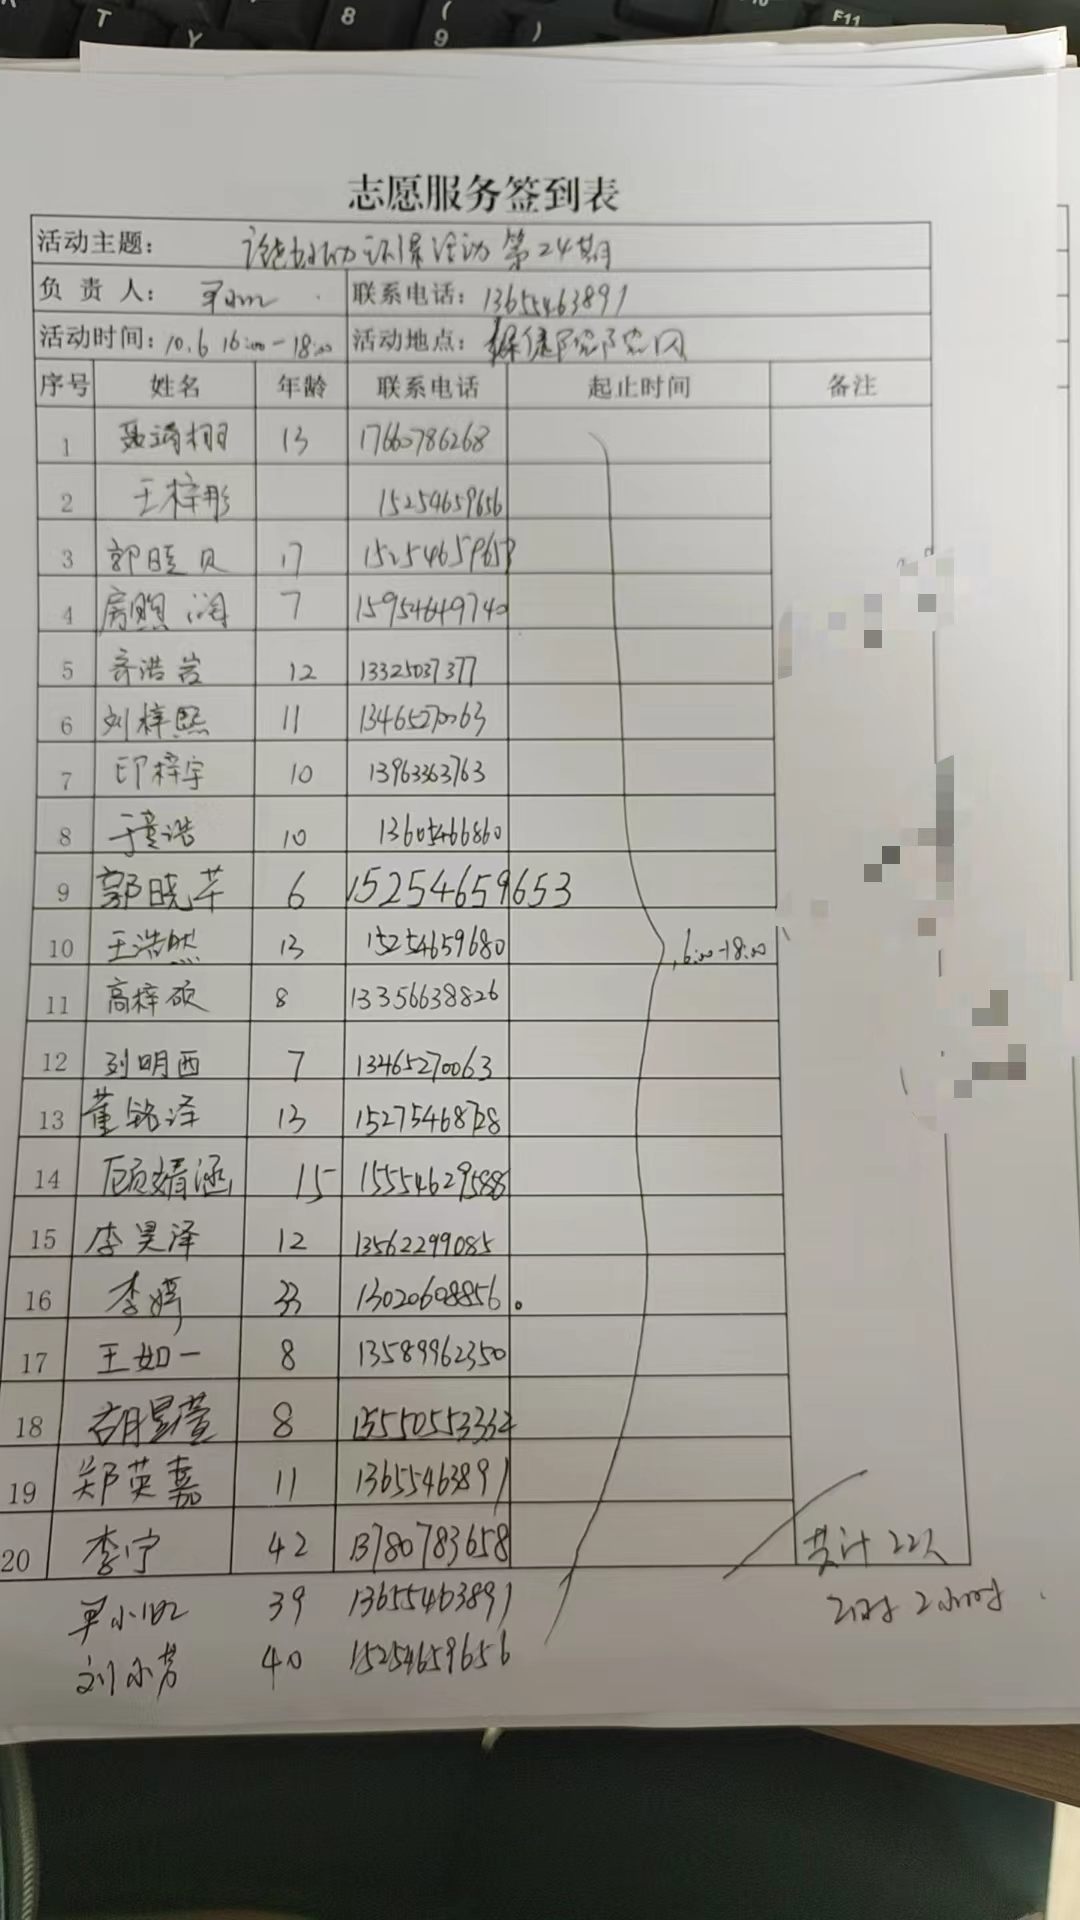 志愿服务签到表
活动主题: 环保活动 第24期
负责人: 联系电话: 13655463891
活动时间: 10.6 16:00-18:00 活动地点: 保健院院内
序号 姓名 年龄 联系电话 起止时间 备注
1 聂靖栩 13 17660786268
2 王梓彤 15254659656
3 郭晓贝 17 15254659653
4 房照润 7 15954649740
5 齐浩岩 12 13325037377
6 刘梓熙 11 13465270063
7 印梓宇 10 13963363763
8 于童浩 10 13605466860
9 郭晓芊 6 15254659653
10 王浩然 13 15254659680 16:00-18:00
11 高梓硕 8 13356638826
12 刘明西 7 13465270063
13 董铭泽 13 15275468728
14 顾婧涵 15 15554629588
15 李昊泽 12 13562299085
16 李婷 33 13020608856
17 王如一 8 13589962350
18 胡星萱 8 15550553332
19 郑英嘉 11 13655463891
20 李宁 42 13780783658 共计22人
39 13655463891 2小时
刘小芳 40 15254659656